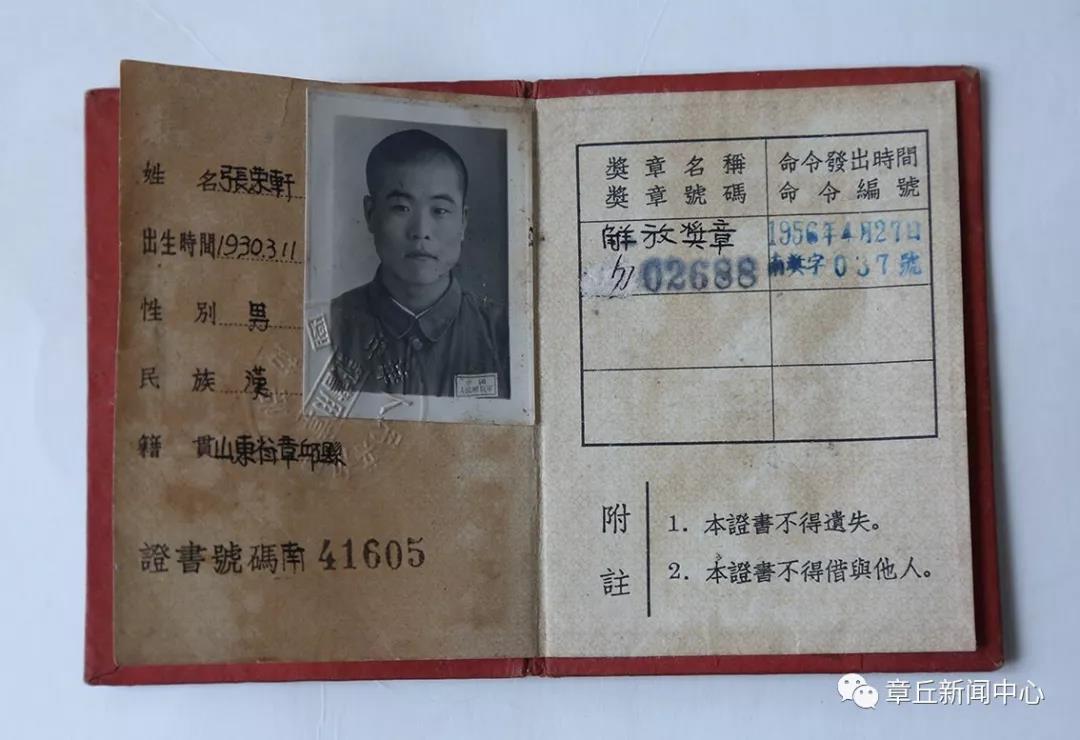 姓名張荣軒
出生時間1930.3.11
性别男
民族漢
籍貫山東省章邱縣
證書號碼南41605
獎章名稱
獎章號碼
命令發出時間
命令編號
解放獎章
02688
1956年4月27日
南獎字037號
附註
1. 本證書不得遺失。
2. 本證書不得借與他人。
章丘新闻中心